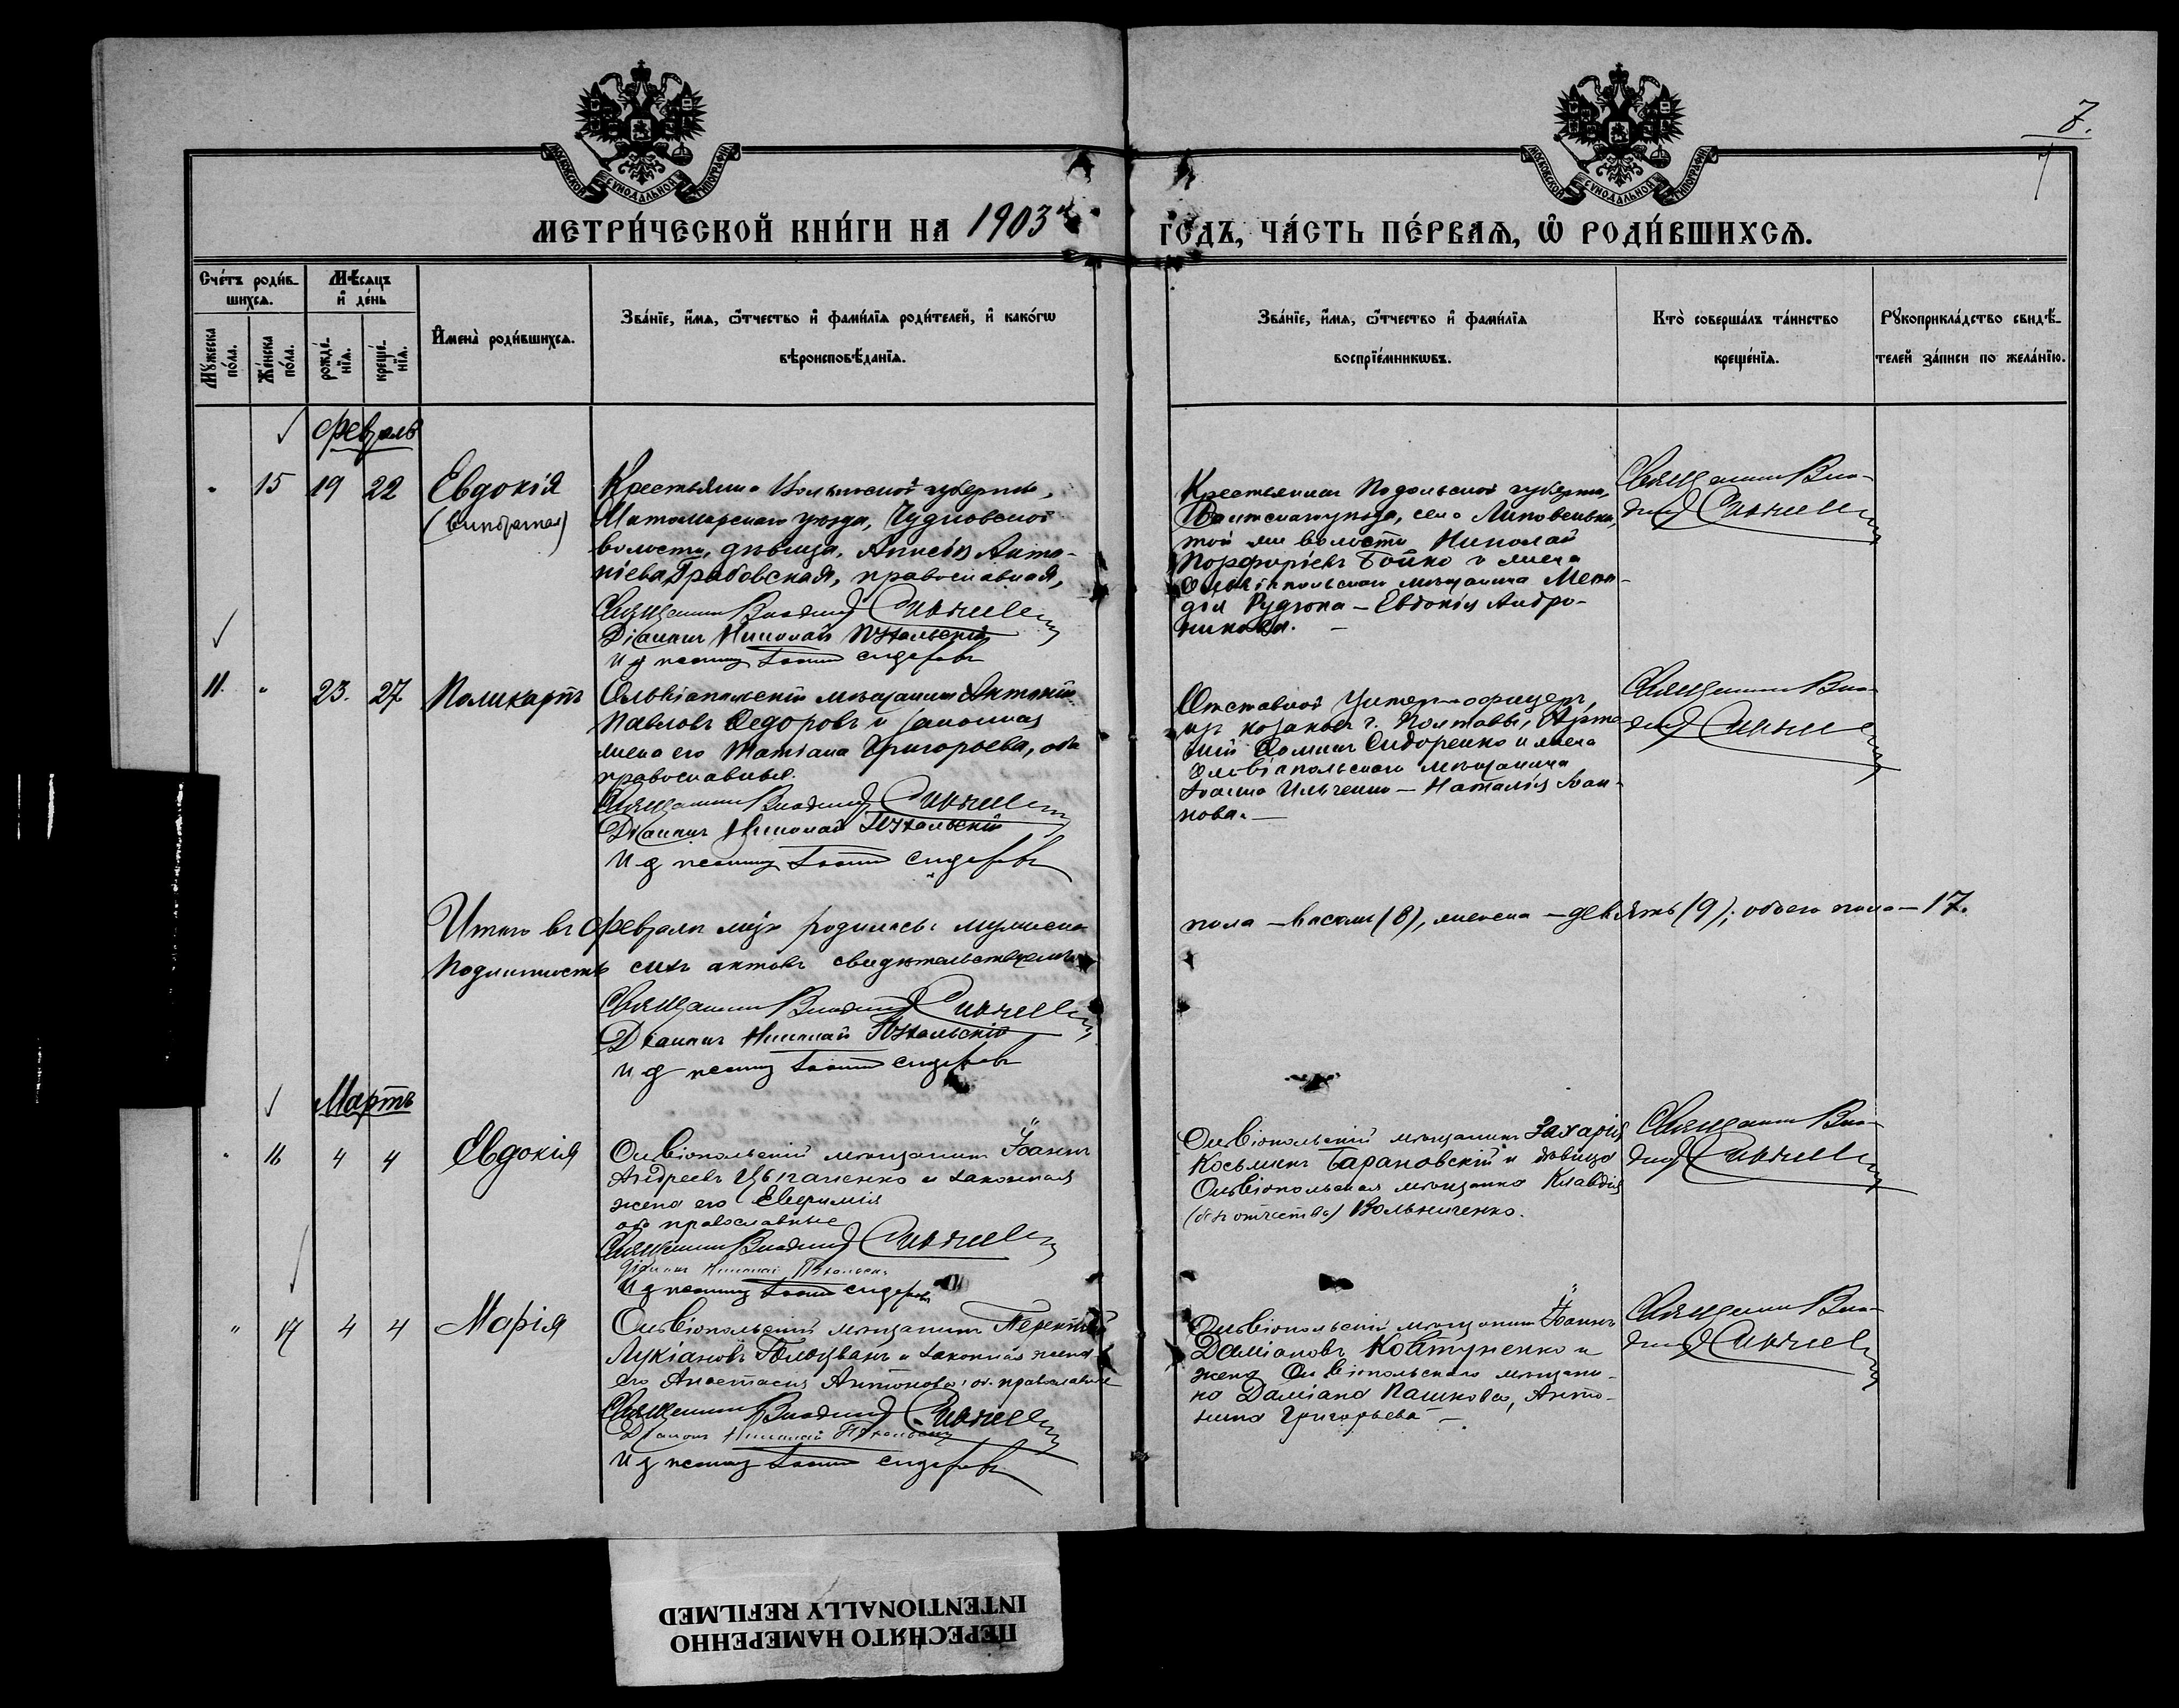 7.
МОСКОВСКОЙ СУНОДАЛЬНОЙ ТИПОГРАФІИ
МОСКОВСКОЙ СУНОДАЛЬНОЙ ТИПОГРАФІИ
МЕТРИ́ЧЕСКОЙ КНИ́ГИ НА 1903й ГО́ДЪ, ЧА́СТЬ ПЕ́РВАѦ, Ѡ҆ РОДИ́ВШИХСѦ.
Сче́тъ роди́в-
шихсѧ.
Мѣ́сѧцъ
и҆ де́нь
Мꙋ́жеска по́ла.
Же́нска по́ла.
рожде́нїѧ.
креще́нїѧ.
И҆мена̀ роди́вшихсѧ.
Зва́нїе, и҆́мѧ, ѻ҆́тчество и҆ фами́лїѧ роди́телей, и҆ како́гѡ
вѣроисповѣ́данїѧ.
Зва́нїе, и҆́мѧ, ѻ҆́тчество и҆ фами́лїѧ
воспрїе́мникѡвъ.
Кто̀ соверша́лъ та́инство
креще́нїѧ.
Рꙋкоприкла́дство свидѣ́-
телей за́писи по жела́нїю.
Февраль
15 19 22 Евдокія
Крестьянка Волынской губерніи,
Житомирскаго уѣзда, Чудновской
волости, дѣвица, Анисія Анто-
ніева Грабовская, православная,
Священникъ Владимір
Діаконъ Николай
И д псаломщ Сидоровъ
Крестьянинъ Подольской губерніи,
Балтскаго уѣзда, села Липовеньки,
той же волости Николай
Порфиріевъ Бойко и жена
Ольвіопольскаго мѣщанина
Рудюка - Евдокія Андро-
никова. -
Священникъ Вла-
димір
11. " 23. 27 Поликарпъ
Ольвіопольскій мѣщанинъ Антоній
Павловъ Ѳедоровъ и законная
жена его Татіана Григорьева, оба
православные.
Священникъ Владимір
Діаконъ Николай
И д псаломщ Сидоровъ
Отставной унтеръ-офицеръ,
изъ козаковъ г. Полтавы,
Ѳоминъ Сидоренко и жена
Ольвіопольскаго мѣщанина
Іоанна Ильченко - Наталія Іоан-
нова. -
Священникъ Вла-
димір
Итого въ Февралѣ мцѣ родилось: мужеска пола - восемь (8), женска - девять (9); обоего пола - 17.
Подлинность сихъ актовъ свидѣтельствуемъ
Священникъ Владимір
Діаконъ Николай
И д псаломщ Сидоровъ
Мартъ
16 4 4 Евдокія
Ольвіопольскій мѣщанинъ Іоаннъ
Андреевъ Цыганенко и законная
жена его Евфимія
оба православные
Священникъ Владимір
Діаконъ Николай
И д псаломщ Сидоровъ
Ольвіопольскій мѣщанинъ Захарія
Косьминъ Барановскій и дѣвица
Ольвіопольская мѣщанка Клавдія
(безъ отчества) Вольниченко.
Священникъ Вла-
димір
" 17 4 4 Марія
Ольвіопольскій мѣщанинъ Терентій
Лукіановъ и законная жена
его Анастасія Антонова, об. православные
Священникъ Владимір
Діаконъ Николай
И д псаломщ Сидоровъ
Ольвіопольскій мѣщанинъ Іоаннъ
Даміановъ Ковтуненко и
жена Ольвіопольскаго мѣщани-
на Даміана Пашкова, Анто-
нина Григорьева -
Священникъ Вла-
димір
ПЕРЕСНЯТО НАМЕРЕННО
INTENTIONALLY REFILMED